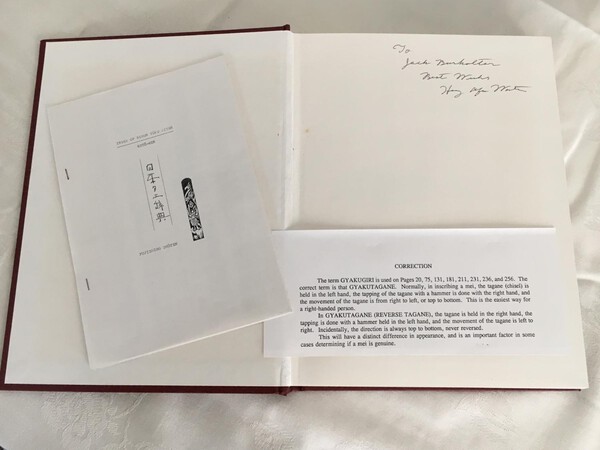 To
Jack
Best
CORRECTION
The term GYAKUGIRI is used on Pages 20, 75, 131, 181, 211, 231, 236, and 256. The
correct term is that GYAKUTAGANE. Normally, in inscribing a mei, the tagane (chisel) is
held in the left hand, the tapping of the tagane with a hammer is done with the right hand, and
the movement of the tagane is from right to left, or top to bottom. This is the easiest way for
a right-handed person.
In GYAKUTAGANE (REVERSE TAGANE), the tagane is held in the right hand, the
tapping is done with a hammer held in the left hand, and the movement of the tagane is left to
right. Incidentally, the direction is always top to bottom, never reversed.
This will have a distinct difference in appearance, and is an important factor in some
cases determining if a mei is genuine.